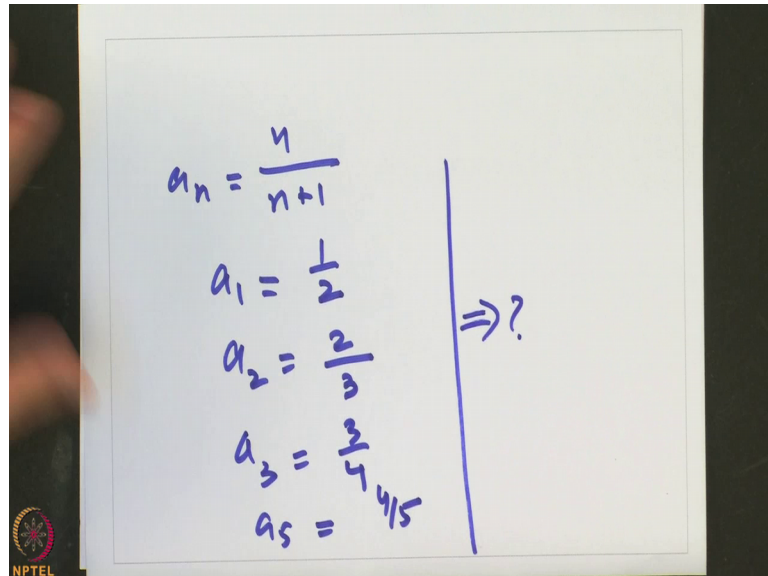 aₙ = n/(n+1)
a₁ = 1/2
a₂ = 2/3
⇒ ?
a₃ = 3/4
a₅ = 4/5
NPTEL